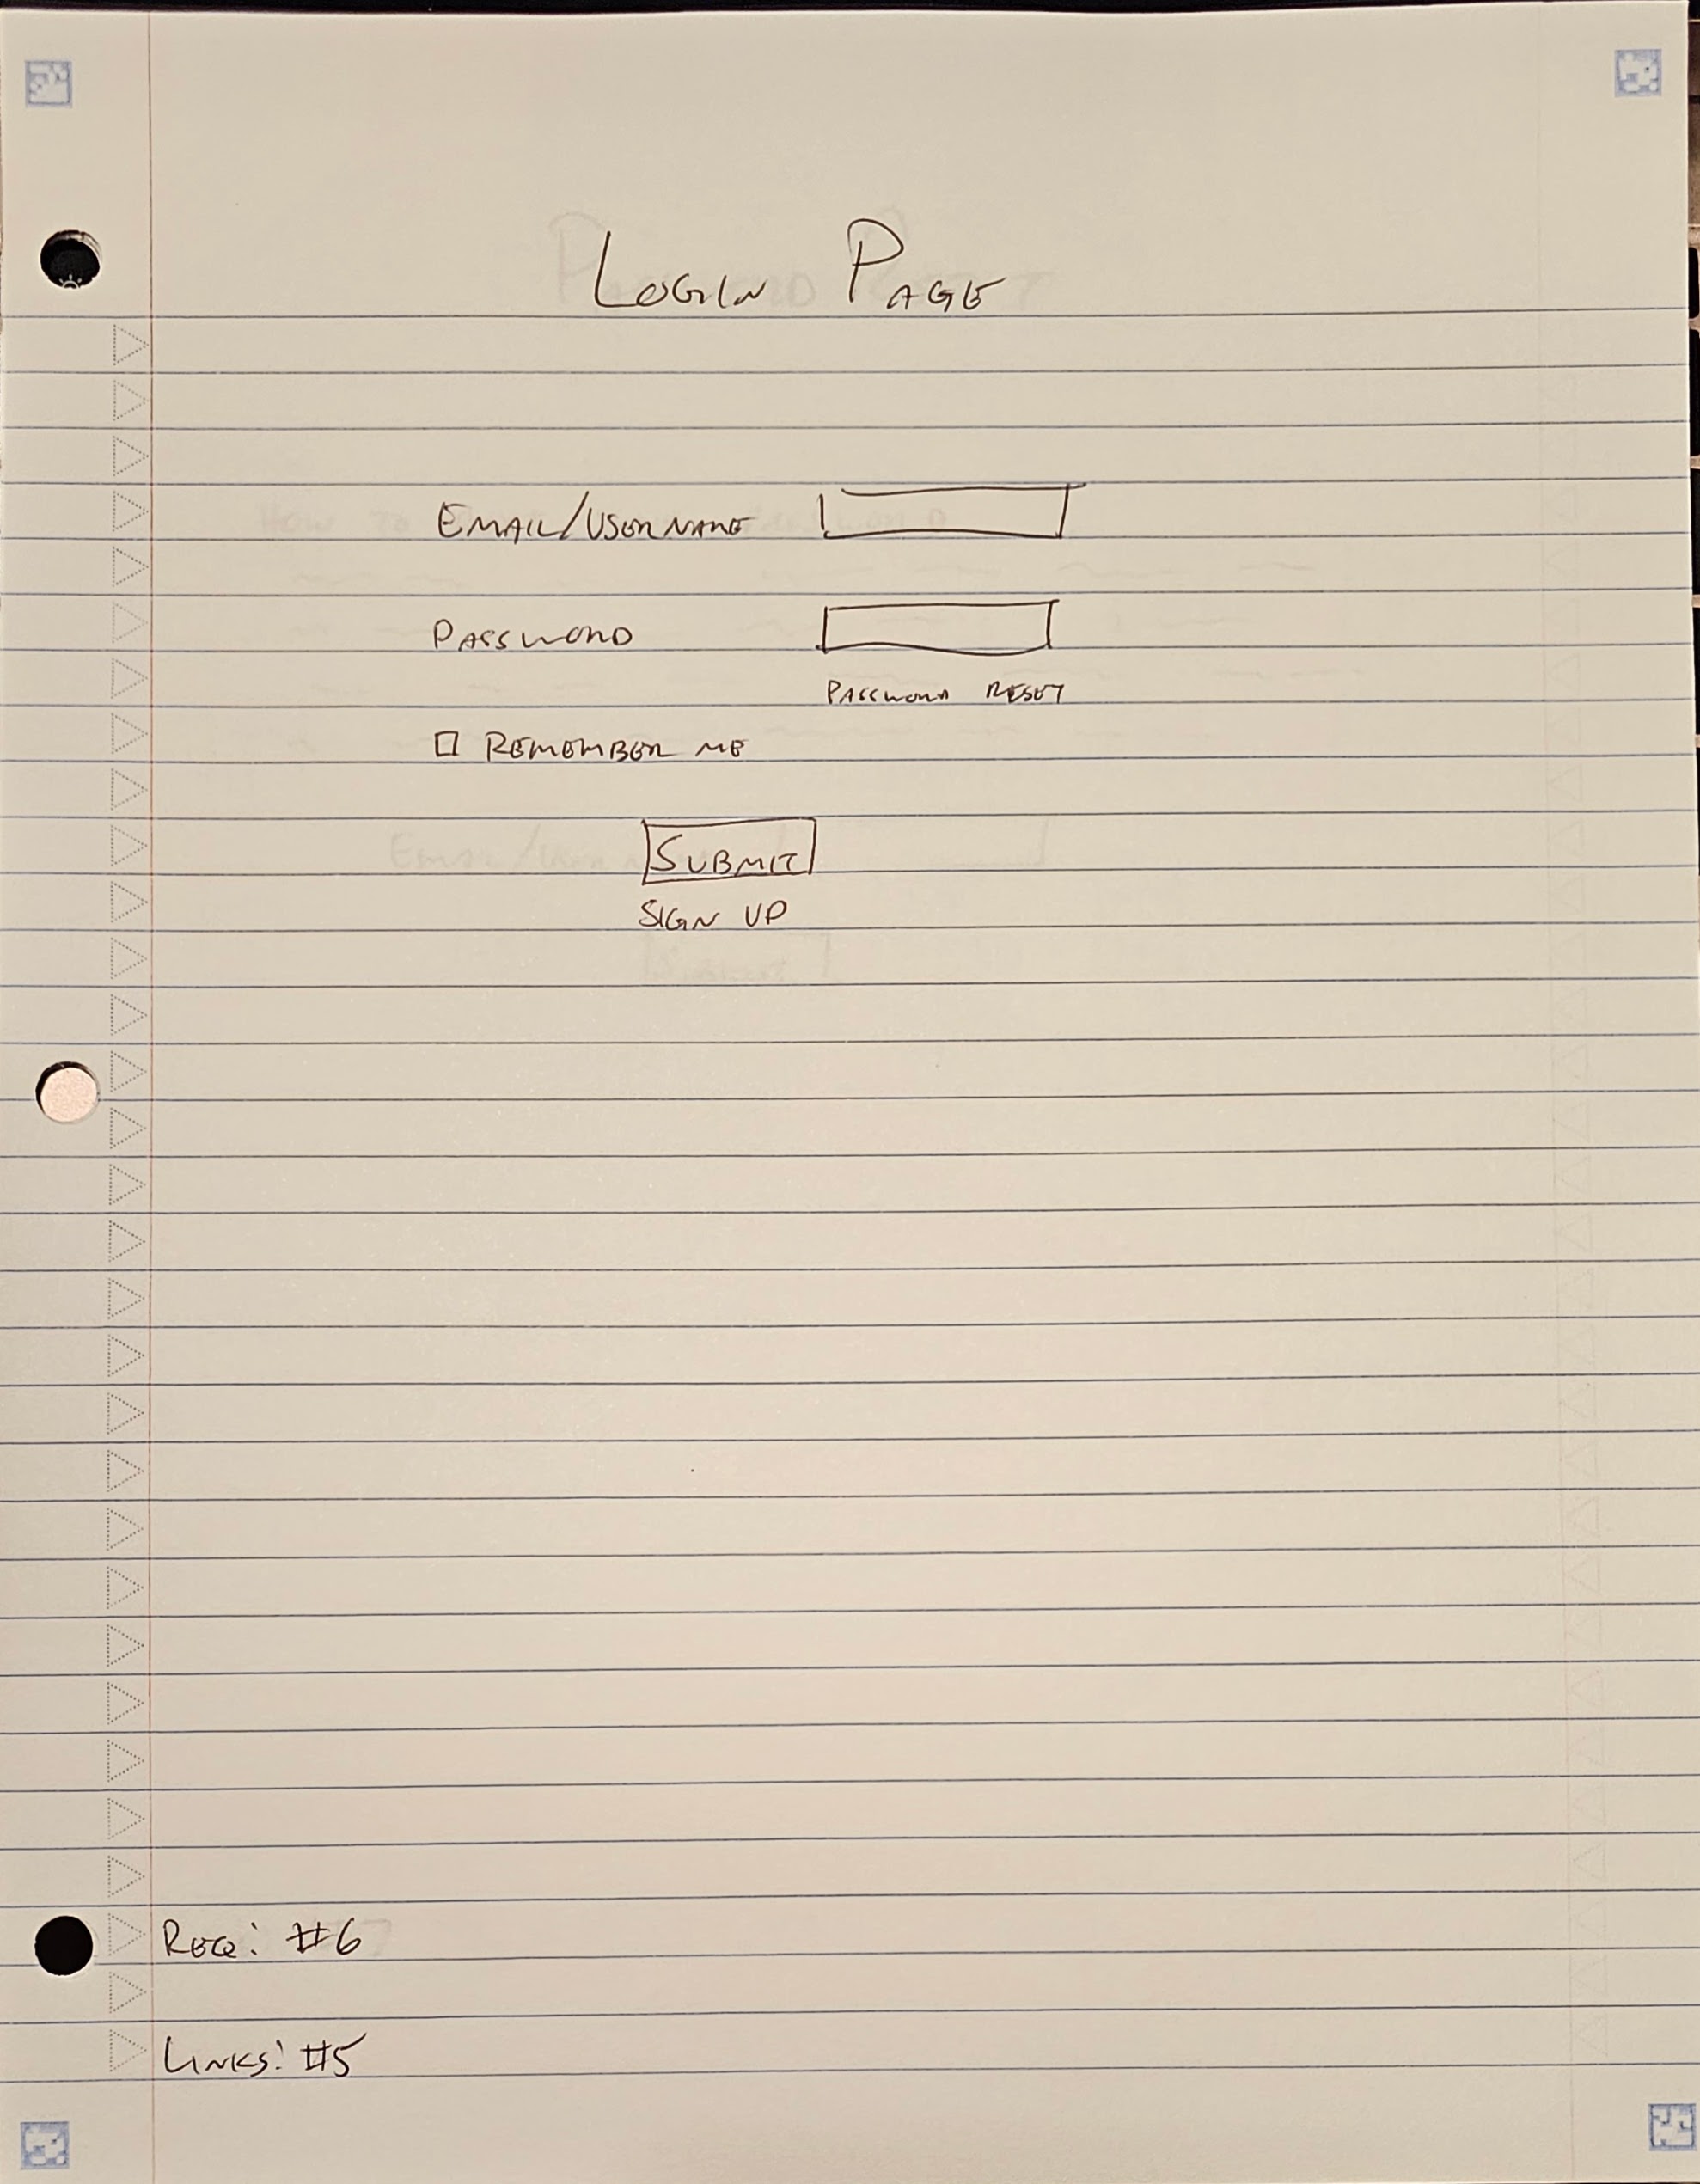 LOGIN PAGE
EMAIL/USERNAME
PASSWORD
PASSWORD RESET
REMEMBER ME
SUBMIT
SIGN UP
REQ: #6
LINKS: #5